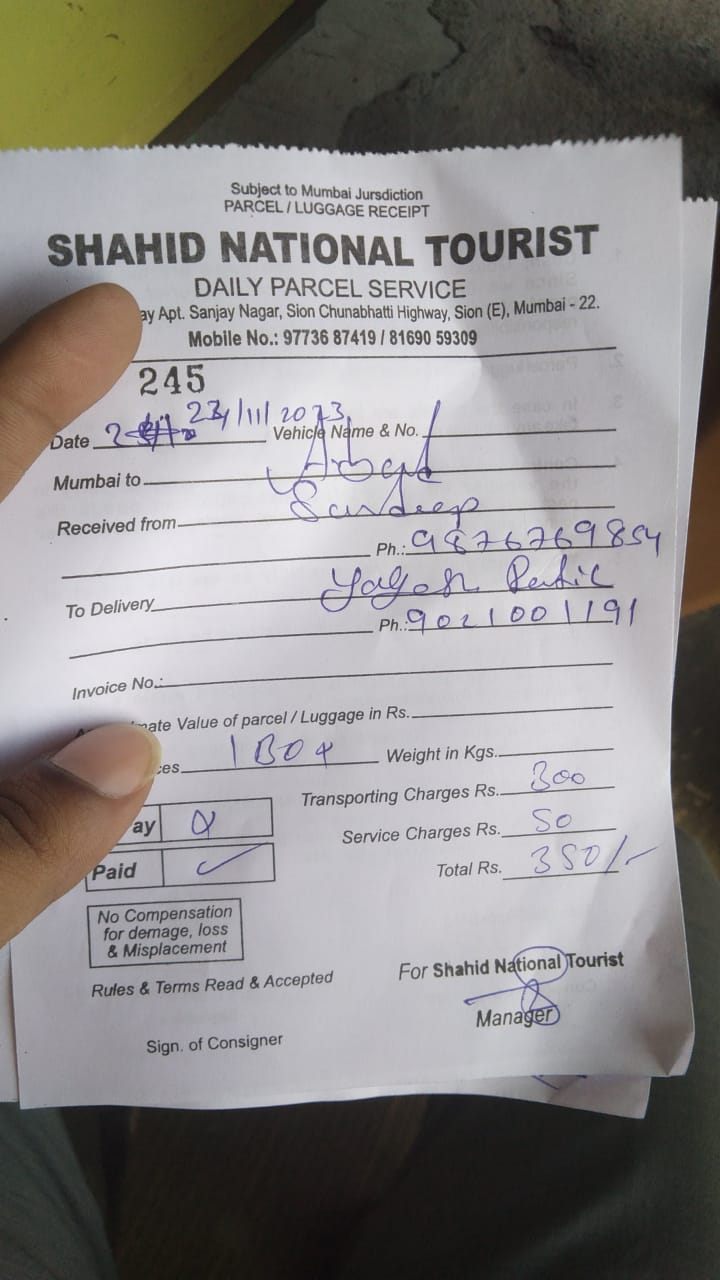 Subject to Mumbai Jursdiction
PARCEL / LUGGAGE RECEIPT
SHAHID NATIONAL TOURIST
DAILY PARCEL SERVICE
ay Apt. Sanjay Nagar, Sion Chunabhatti Highway, Sion (E), Mumbai - 22.
Mobile No.: 97736 87419 / 81690 59309
245
Date 23/11/2023 Vehicle Name & No.
Mumbai to
Received from Sandeep
Ph.: 9876769854
To Delivery Yogesh Patil
Ph.: 9021001191
Invoice No.:
mate Value of parcel / Luggage in Rs.
ces 1 Box Weight in Kgs.
Transporting Charges Rs. 300
ay
Service Charges Rs. 50
Paid ✓
Total Rs. 350/-
No Compensation
for demage, loss
& Misplacement
Rules & Terms Read & Accepted
For Shahid National Tourist
Manager
Sign. of Consigner